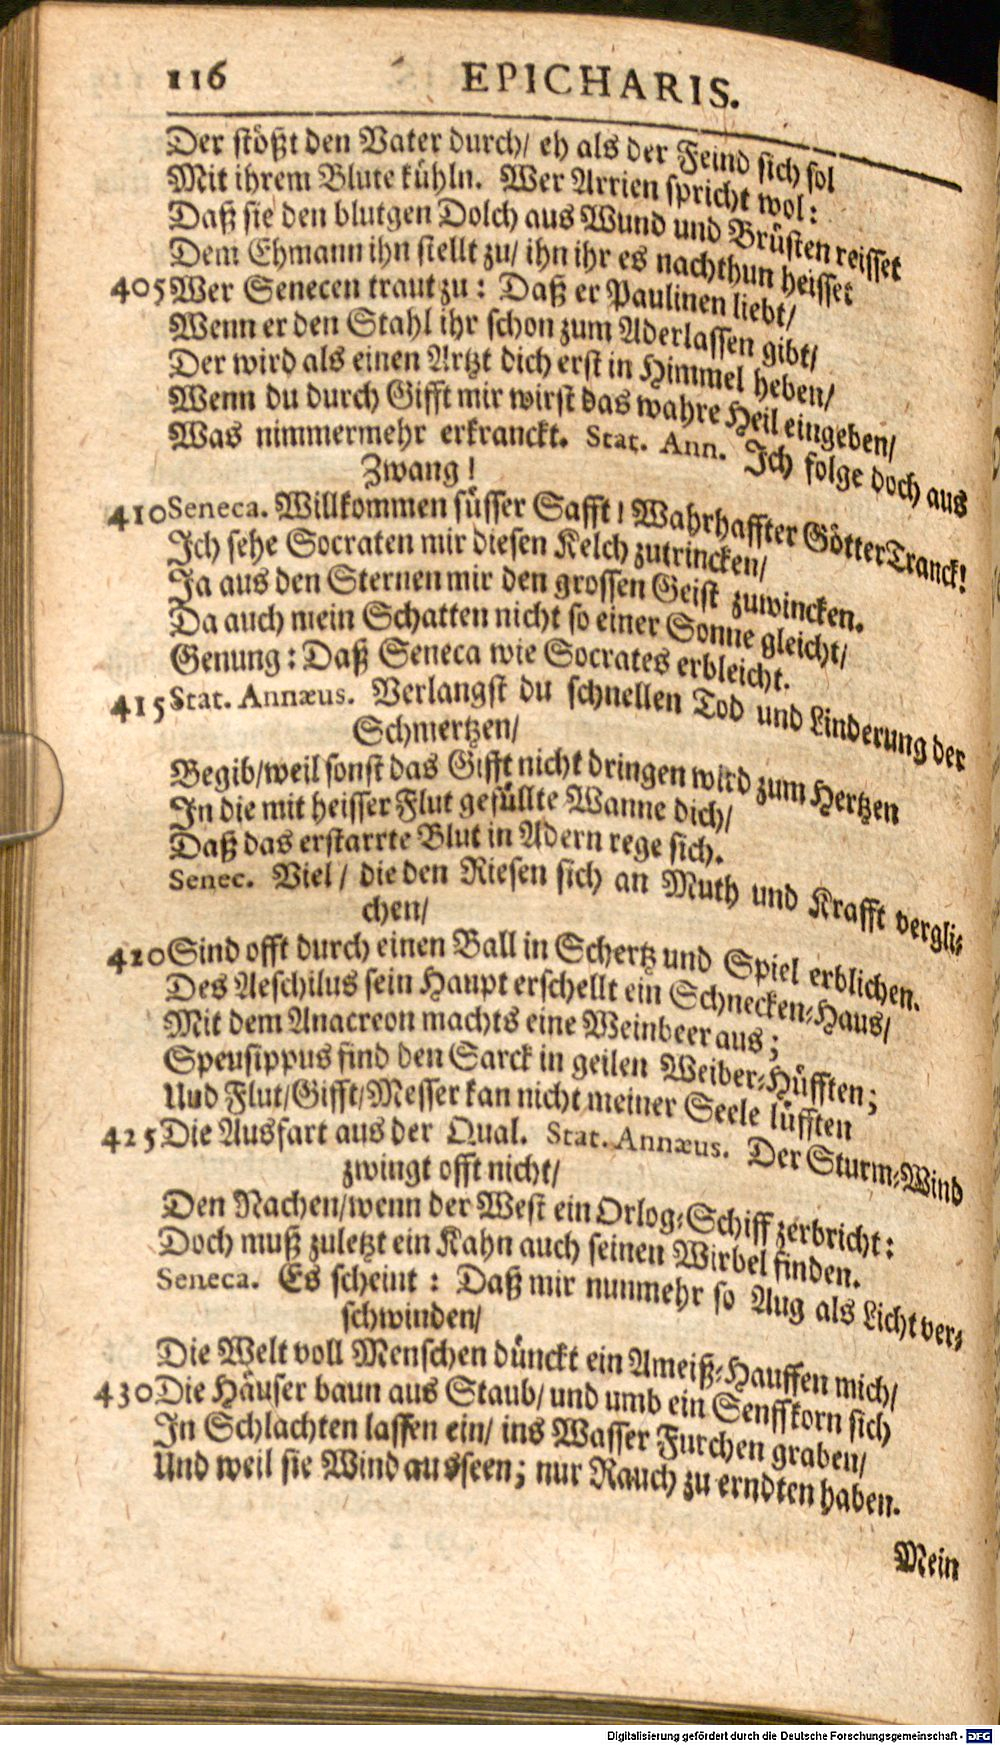 116 EPICHARIS.
Der stößt den Vater durch/ eh als der Feind sich sol
Mit ihrem Blute kühln. Wer Arrien spricht wol:
Daß sie den blutgen Dolch aus Wund und Brüsten reisset
Dem Ehmann ihn stellt zu/ ihn ihr es nachthun heisset
405 Wer Senecen traut zu: Daß er Paulinen liebt/
Wenn er den Stahl ihr schon zum Aderlassen gibt/
Der wird als einen Artzt dich erst in Himmel heben/
Wenn du durch Gifft mir wirst das wahre Heil eingeben/
Was nimmermehr erkranckt. Stat. Ann. Ich folge doch aus
Zwang!
410 Seneca. Willkommen süsser Safft! Wahrhaffter Götter Tranck!
Ich sehe Socraten mir diesen Kelch zutrincken/
Ja aus den Sternen mir den grossen Geist zuwincken.
Da auch mein Schatten nicht so einer Sonne gleicht/
Genung: Daß Seneca wie Socrates erbleicht.
415 Stat. Annæus. Verlangst du schnellen Tod und Linderung der
Schmertzen/
Begib/ weil sonst das Gifft nicht dringen wird zum Hertzen
In die mit heisser Flut gefüllte Wanne dich/
Daß das erstarrte Blut in Adern rege sich.
Senec. Viel / die den Riesen sich an Muth und Krafft vergli-
chen/
420 Sind offt durch einen Ball in Schertz und Spiel erblichen.
Des Aeschilus sein Haupt erschellt ein Schnecken-Haus/
Mit dem Anacreon machts eine Weinbeer aus;
Speusippus find den Sarck in geilen Weiber-Hüfften;
Und Flut/ Gifft/ Messer kan nicht meiner Seele lüfften
425 Die Ausfart aus der Qual. Stat. Annæus. Der Sturm-Wind
zwingt offt nicht/
Den Nachen/ wenn der West ein Orlog-Schiff zerbricht:
Doch muß zuletzt ein Kahn auch seinen Wirbel finden.
Seneca. Es scheint: Daß mir nunmehr so Aug als Licht ver-
schwinden/
Die Welt voll Menschen dünckt ein Ameiß-Hauffen mich/
430 Die Häuser baun aus Staub/ und umb ein Senffkorn sich
In Schlachten lassen ein/ ins Wasser Furchen graben/
Und weil sie Wind ausseen; nur Rauch zu erndten haben.
Mein
Digitalisierung gefördert durch die Deutsche Forschungsgemeinschaft - DFG